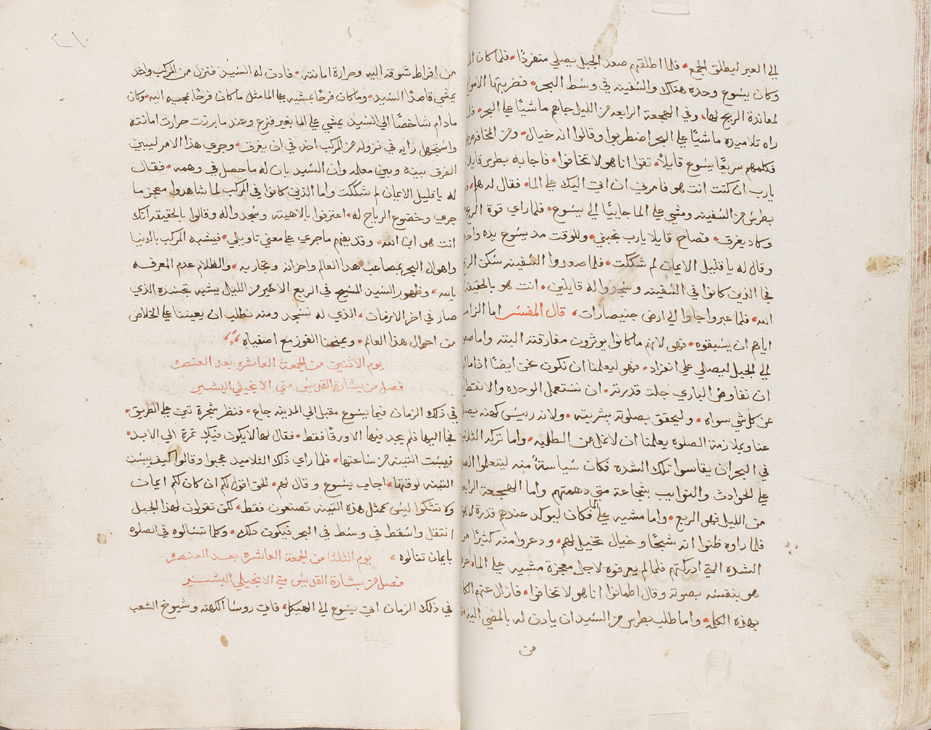 الي العبر ليطلق الجمع • فلما اطلقهم صعد الجبل يصلي منفردًا • فلما كان
وكان يسوع وحده هناك والسفينه في وسط البحر • فضربتها الامواج
لمعاندة الريح لها • وفي الهجعة الرابعه من الليل جاهم ماشيًا علي البحر •
راه تلاميذه ماشيًا علي البحر اضطربوا وقالوا انه خيال • ومن الخافه
فكلمهم سريعًا يسوع قايلاً • تقوا انا هو لا تخافوا • فاجابه بطرس قايلاً
يارب ان كنت انت هو فامرني ان اتي اليك علي الما • فقال له
بطرس من السفينه ومشي علي الما جاييًا الي يسوع • فلما راي قوة الريح
وكاد يغرق • فصاح قايلا يارب نجيني • وللوقت مد يسوع يده
وقال له يا قليل الايمان لم شككت • فلما صعدوا السفينه سكن الريح
فجا الذين كانوا في السفينه وسجدوا له قايلين • انت هو بالحقيقه
الله • فلما عبروا جاوا الي ارض جنيصارات • قال المفسر اما الزامه
اياهم ان يسبقوه • فهو لانهم ما كانوا يوثرون مفارقته البته • واما
الي الجبل ليصلي علي انفراد • فهو ليعلمنا ان نكون نحن ايضًا اذا
ان نفاوض الباري جلت قدرته • ان نستعمل الوحده والانقطاع
عن كل شي سواه • وليحقق بصلوته بشريته • ولانه رييس كهنه
عنا وبملازمة الصلوه يعلمنا ان لا نمل من الطلبه • واما تركه التلاميذ
في البحر ان يقاسوا تلك الشده فكان سياسةً منه ليتعلموا
علي الحوادث والنوايب بشجاعة متي دهمتهم واما الهجعة الرابعه
من الليل فهو الربع • واما مشيه علي الما فكان ليوكد عندهم قدرة
فلما راوه ظنوا انه شبحًا وخيال تخيل لهم • ودعروا منه كثيرًا
الشده التي ادركتهم فلما لم يعرفوه لاجل معجزة مشيه علي الما •
هو بنفسه بصوته وقال اطمانوا انا هو لا تخافوا • فازال عنهم
بهذه الكله • واما طلب بطرس من السيد ان يادن له بالمضي اليه
من
من افراط شوقه اليه وحرارة امانته • فادن له السيد فنزل من المركب واخد
يمشي قاصدًا السيد • وما كان فرحًا بمشيه علي الما مثل ما كان فرحًا بمجيه اليه • وكان
مادام شاخصًا الي السيد يمشي علي الما بغير فزع وعند ما بردت حرارت امانته
واستجهل رايه في نزوله من المركب اخد في ان يغرق • وجري هذا الامر ليبين
الفرق بينه وبين معلمه وان السيد بان له ما حصل في وهمه • فقال
له يا قليل الايمان لم شككت واما الذين كانوا في المركب لما شاهدوا معجز ما
جري وخضوع الرياح له • اعترفوا بالاهيته وسجدوا له وقالوا بالحقيقه انك
انت هو ابن الله • وقد يفهم ما جري علي معني تاويلي • فيشبه المركب بالدنيا
واهوال البحر بمصاعب هذا العالم واحزانه وتجاربه • والظلام عدم المعرفه
بالله • وظهور السيد المسيح في الربع الاخير من الليل يشبه بتجسده الذي
صار في اخر الازمان • الذي له نسجد ومنه نطلب ان يعيننا علي الخلاص
من اهوال هذا العالم • ويمنحنا الفوز مع اصفياه
يوم الاثنين من الجمعة العاشره بعد العنصره
فصل من بشارة القديس متي الانجيلي البشير
في ذلك الزمان فيما يسوع مقبل الي المدينه جاع • فنظر شجرة تين علي الطريق •
فجا اليها فلم يجد فيها الا ورقًا فقط • فقال لها لا يكون فيكِ ثمرة الي الابد •
فيبست التينه من ساعتها • فلما راي ذلك التلاميد عجبوا وقالوا كيف يبست
التينه لوقتها • اجاب يسوع وقال لهم • الحق اقول لكم ان كان لكم ايمان
ولا تشكوا ليس كمثل هذه التينه تصنعون فقط • لكن تقولون لهذا الجبل
انتقل واسقط في وسط في البحر فيكون ذلك • وكلما تسالوه في الصلوه
بايمان تنالوه • يوم الثلثا من الجمعة العاشره بعد العنصره
فصل من بشارة القديس متي الانجيلي البشير
في ذلك الزمان اتي يسوع الي الهيكل • فاتي روسا الكهنه وشيوخ الشعب